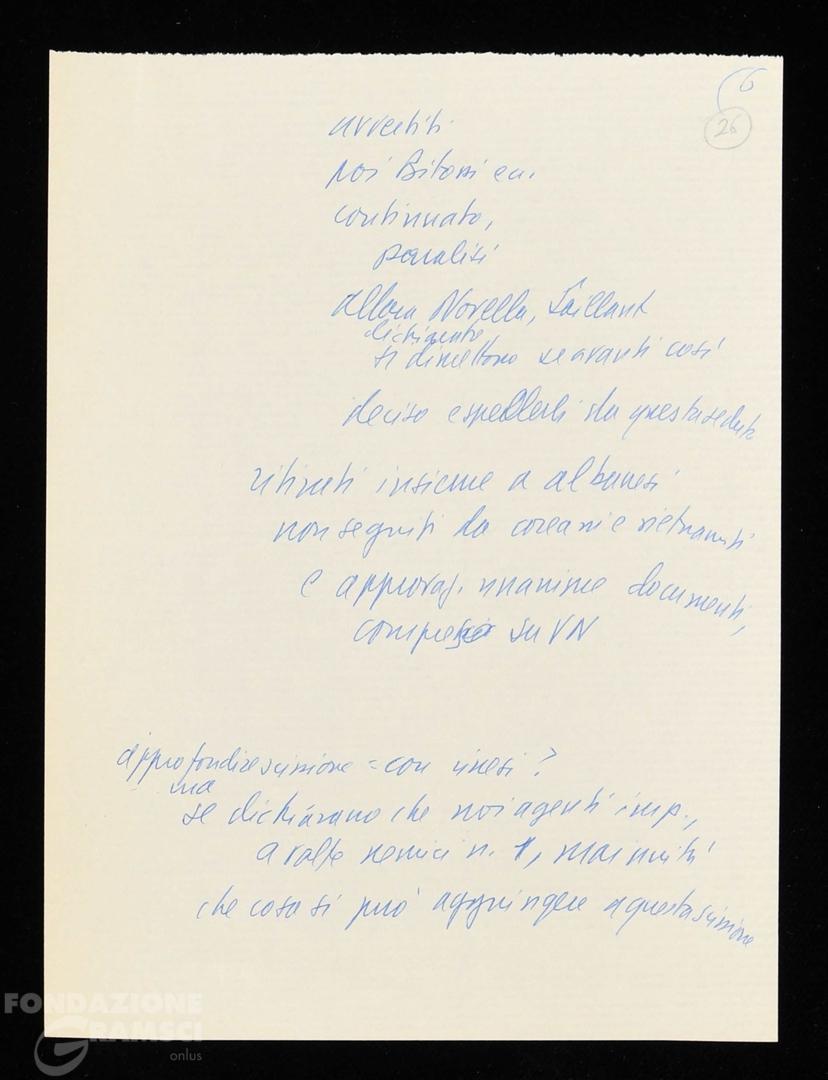 6
26
avvertiti
poi Bitossi ecc.
continuato,
paralisi
allora Novella, Saillant
dichiarato
si dimettono se avanti così
deciso espellerli da questa seduta
ritirati insieme a albanesi
non seguiti da coreani e vietnamiti
e approvaz. unanime documenti,
compreso su VN
approfondire scissione = con cinesi?
ma
se dichiarano che noi agenti imp.,
a volte nemici n. 1, mai unità
che cosa si può aggiungere a questa scissione
FONDAZIONE
GRAMSCI
onlus